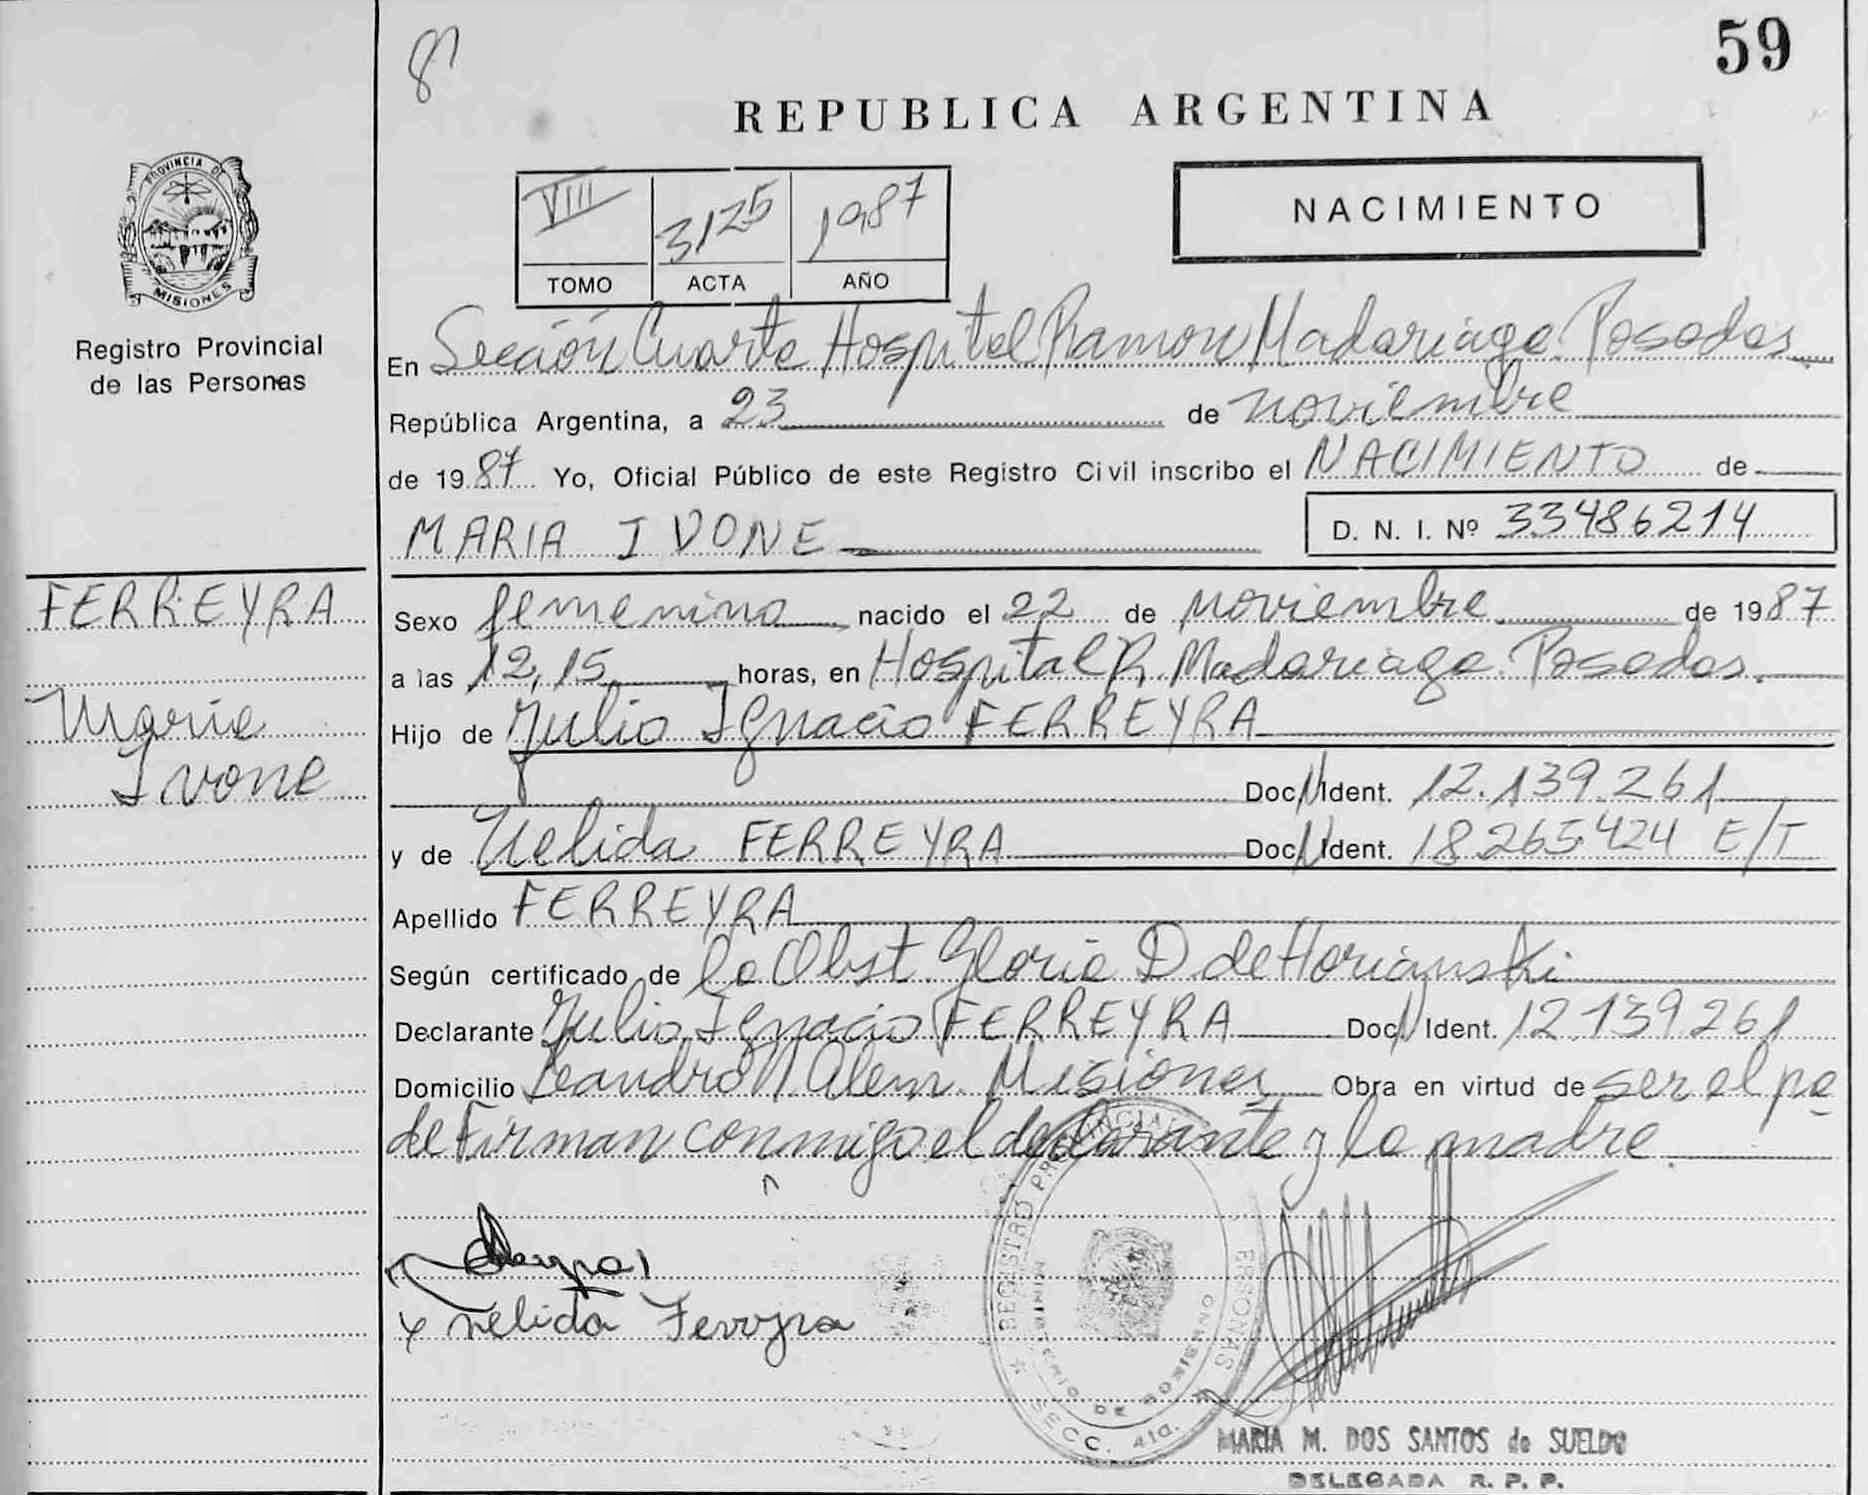 8
59
REPUBLICA ARGENTINA
PROVINCIA DE
MISIONES
Registro Provincial
de las Personas
VIII 3125 1987
TOMO ACTA AÑO
NACIMIENTO
En Sección Cuarta Hospital Ramon Madariaga. Posadas.
República Argentina, a 23 de noviembre
de 1987 Yo, Oficial Público de este Registro Civil inscribo el NACIMIENTO de
MARIA IVONE
D. N. I. Nº 33486214
FERREYRA
Maria
Ivone
Sexo femenino nacido el 22 de noviembre de 1987
a las 12,15 horas, en Hospital R. Madariaga. Posadas.
Hijo de Julio Ignacio FERREYRA
Doc. N Ident. 12.139.261
y de Nelida FERREYRA Doc. N Ident. 18265424 E/T
Apellido FERREYRA
Según certificado de la Obst. Gloria D. de Horianski
Declarante Julio Ignacio FERREYRA Doc. N Ident. 12.139.261
Domicilio Leandro N Alem. Misiones Obra en virtud de ser el pa
de Firman conmigo el declarante y la madre.
nelida Ferreyra
REGISTRO PROVINCIAL PERSONAS
MINISTERIO DE GOBIERNO
SECC. 4ta.
MARIA M. DOS SANTOS de SUELDO
DELEGADA R. P. P.